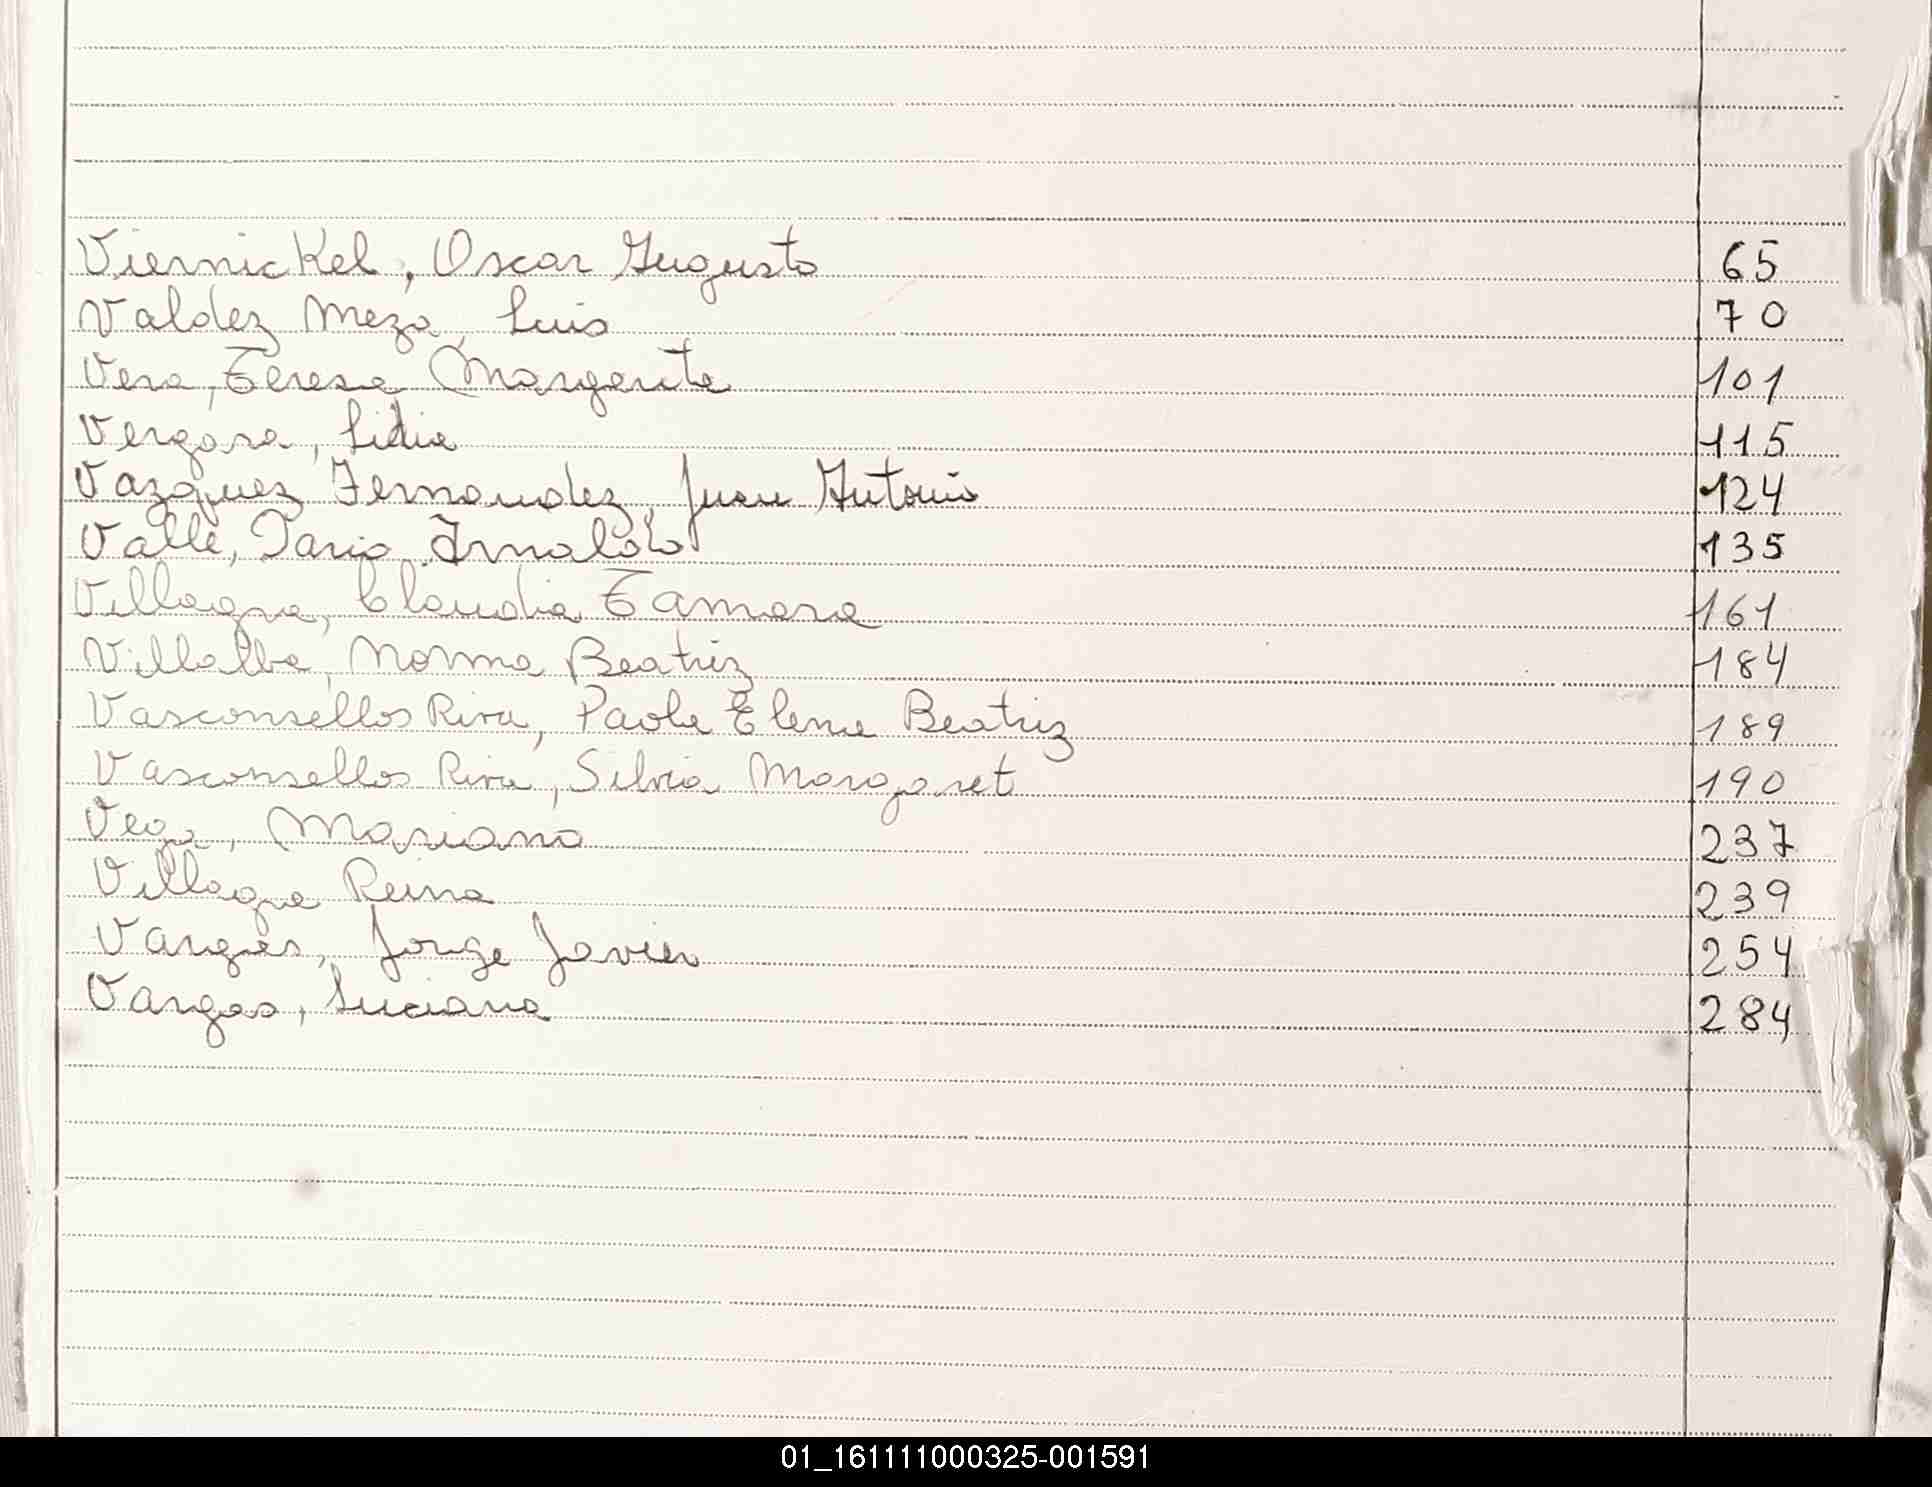 Viernickel, Oscar Augusto 65
Valdez Meza, Luis 70
Vera, Teresa Margarita 101
Vergara, Lidia 115
Vazquez Fernandez, Juan Antonio 124
Valle, Dario Arnaldo 135
Villagra, Claudia Tamara 161
Villalba, Norma Beatriz 184
Vasconsellos Riva, Paola Elena Beatriz 189
Vasconsellos Riva, Silvia Margaret 190
Vega, Mariano 237
Villagra Reina 239
Vargas, Jorge Javier 254
Vargas, Luciana 284
01_161111000325-001591